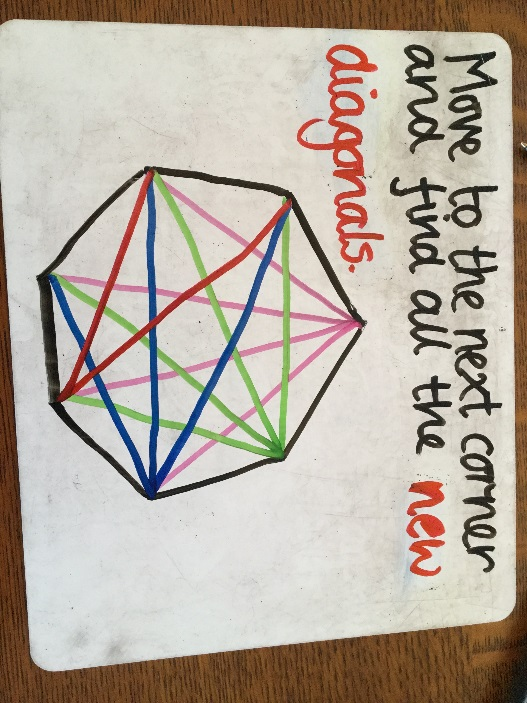 Move to the next corner
and find all the new
diagonals.